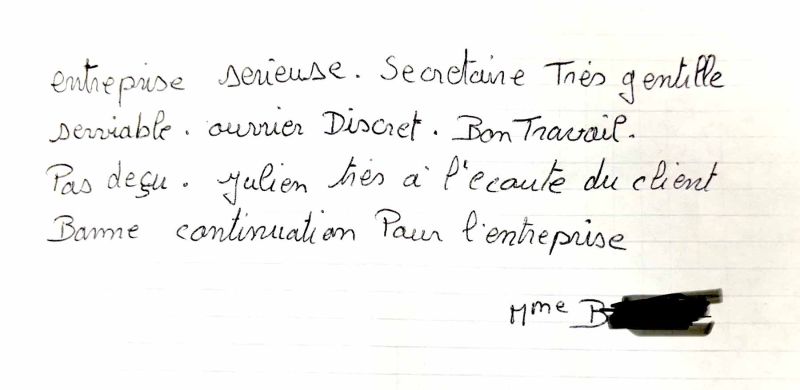 entreprise serieuse. Secretaire Très gentille
serviable. ouvrier Discret. Bon Travail.
Pas deçu. Julien très à l'ecoute du client
Bonne continuation Pour l'entreprise
Mme B